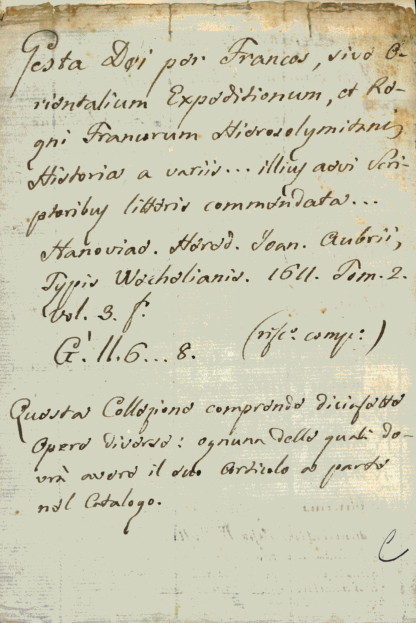 Gesta Dei per Francos, sive O-
rientalium Expeditionum, et Re-
gni Francorum Hierosolymitani,
Historia a variis... illius aevi Scri-
ptoribus litteris commendata...
Hanoviae. Hered. Joan. Aubrii,
Typis Wechelianis. 1611. Tom. 2.
vol. 3. f.º
G. 11. 6... 8. (risc.º comp.º)
Questa Collezione comprende diciasette
Opere diverse: ognuna delle quali do-
vrà avere il suo Articolo a parte
nel Catalogo.
C